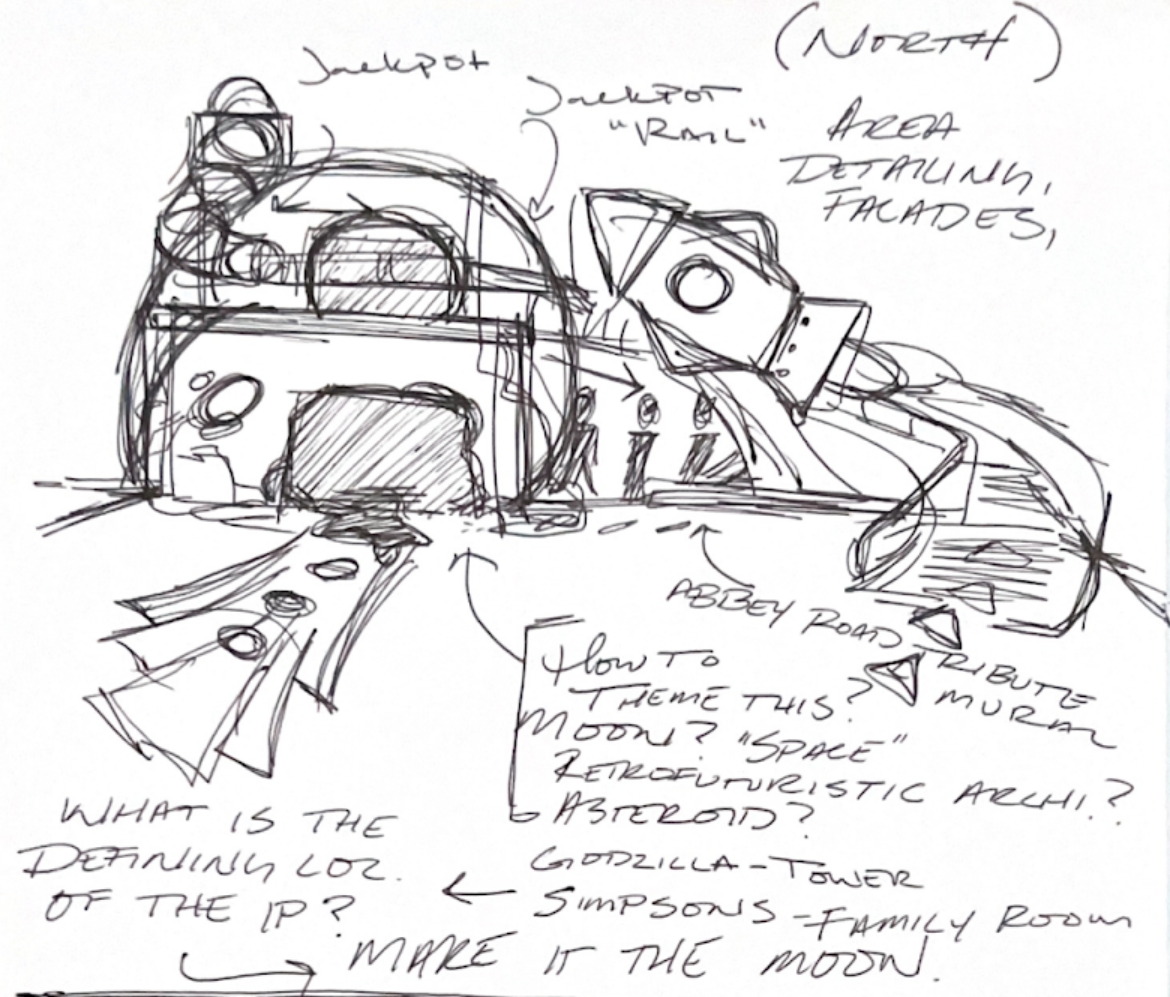 (NORTH)
Jackpot
JackPOT
"RAIL"
AREA
DETAILING,
FACADES,
ABBEY ROAD TRIBUTE
MURAL
HOW TO
THEME THIS?
MOON? "SPACE"
RETROFUTURISTIC ARCHI.?
ASTEROID?
WHAT IS THE
DEFINING LOC.
OF THE IP?
GODZILLA - TOWER
SIMPSONS - FAMILY ROOM
MAKE IT THE MOON.